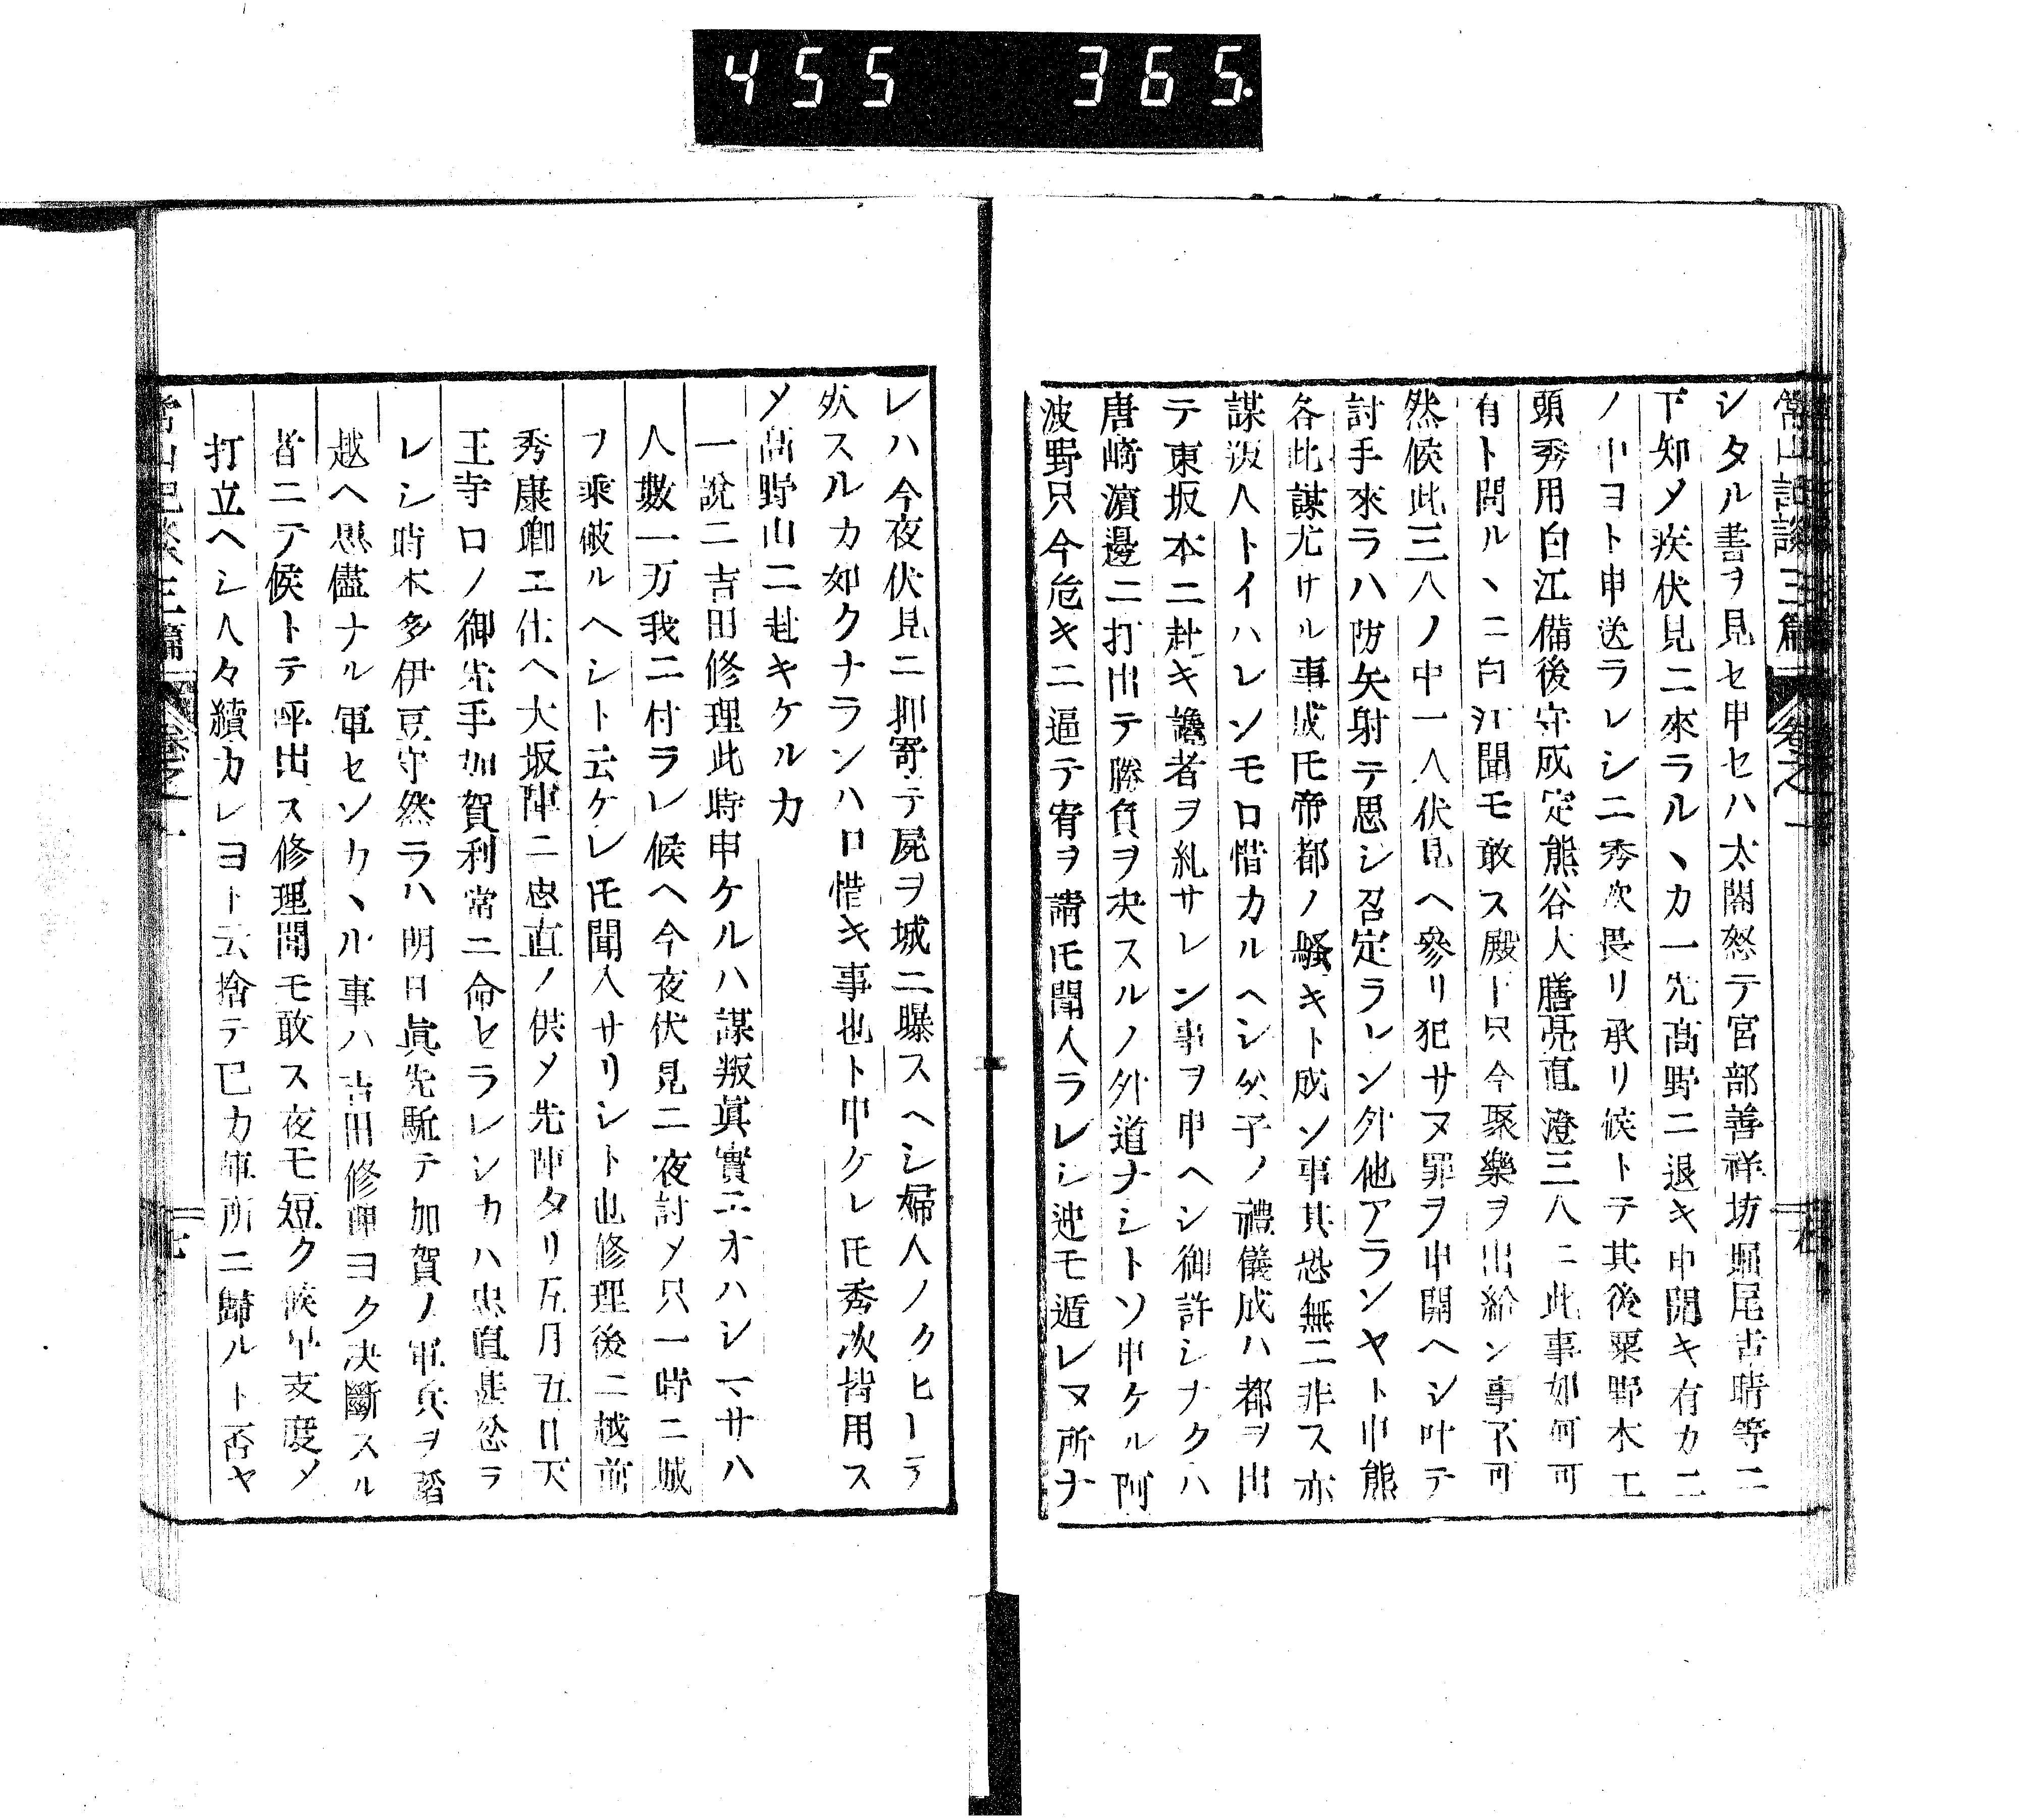 455 365.
常山記談三篇 卷之一
シタル書ヲ見セ申セハ太閤怒テ宮部善祥坊堀尾吉晴等ニ
下知メ疾伏見ニ來ラルヽカ一先髙野ニ退キ申開キ有カ二
ノ中ヨト申送ラレシニ秀次畏リ承リ候トテ其後粟野木工
頭秀用白江備後守成定熊谷大膳亮直澄三人ニ此事如何可
有ト問ルヽニ白江聞モ敢ス殿下只今聚樂ヲ出給ン事不可
然候此三人ノ中一人伏見ヘ參リ犯サヌ罪ヲ申開ヘシ叶テ
討手來ラハ防矢射テ思シ召定ラレン外他アランヤト申熊
各此謀尤ケル事成𪜈帝都ノ騷キト成ン事其恐無ニ非ス亦
謀叛人トイハレンモ口惜カルヘシ父子ノ禮儀成ハ都ヲ出
テ東坂本ニ赴キ讒者ヲ糺サレン事ヲ申ヘシ御許シナクハ
唐崎濵邊ニ打出テ勝負ヲ决スルノ外道ナシトソ申ケル阿
波野只今危キニ逼テ宥ヲ請𪜈聞入ラレシ迚モ遁レヌ所ナ
レハ今夜伏見ニ押寄テ屍ヲ城ニ曝スヘシ婦人ノクヒーテ
死スルカ如クナランハ口惜キ事也ト申ケレ𪜈秀次皆用ス
メ髙野山ニ赴キケルカ
一說ニ吉田修理此時申ケルハ謀叛眞實ニオハシマサハ
人數一万我ニ付ラレ候ヘ今夜伏見ニ夜討メ只一時ニ城
ヲ乘破ルヘシト云ケレ𪜈聞入サリシト也修理後ニ越前
秀康卿エ仕ヘ大坂陣ニ忠直ノ供メ先陣タリ五月五日天
王寺口ノ御先手加賀利常ニ命セラレシカハ忠直甚忿ラ
レシ時本多伊豆守然ラハ明日眞先駈テ加賀ノ軍兵ヲ蹈
越ヘ思儘ナル軍セソカヽル事ハ吉田修理ヨク决斷スル
者ニテ候トテ呼出ス修理聞モ敢ス夜モ短ク候早支度メ
打立ヘシ人々續カレヨト云捨テ已カ陣所ニ歸ルト否ヤ
常山記談三篇 卷之一